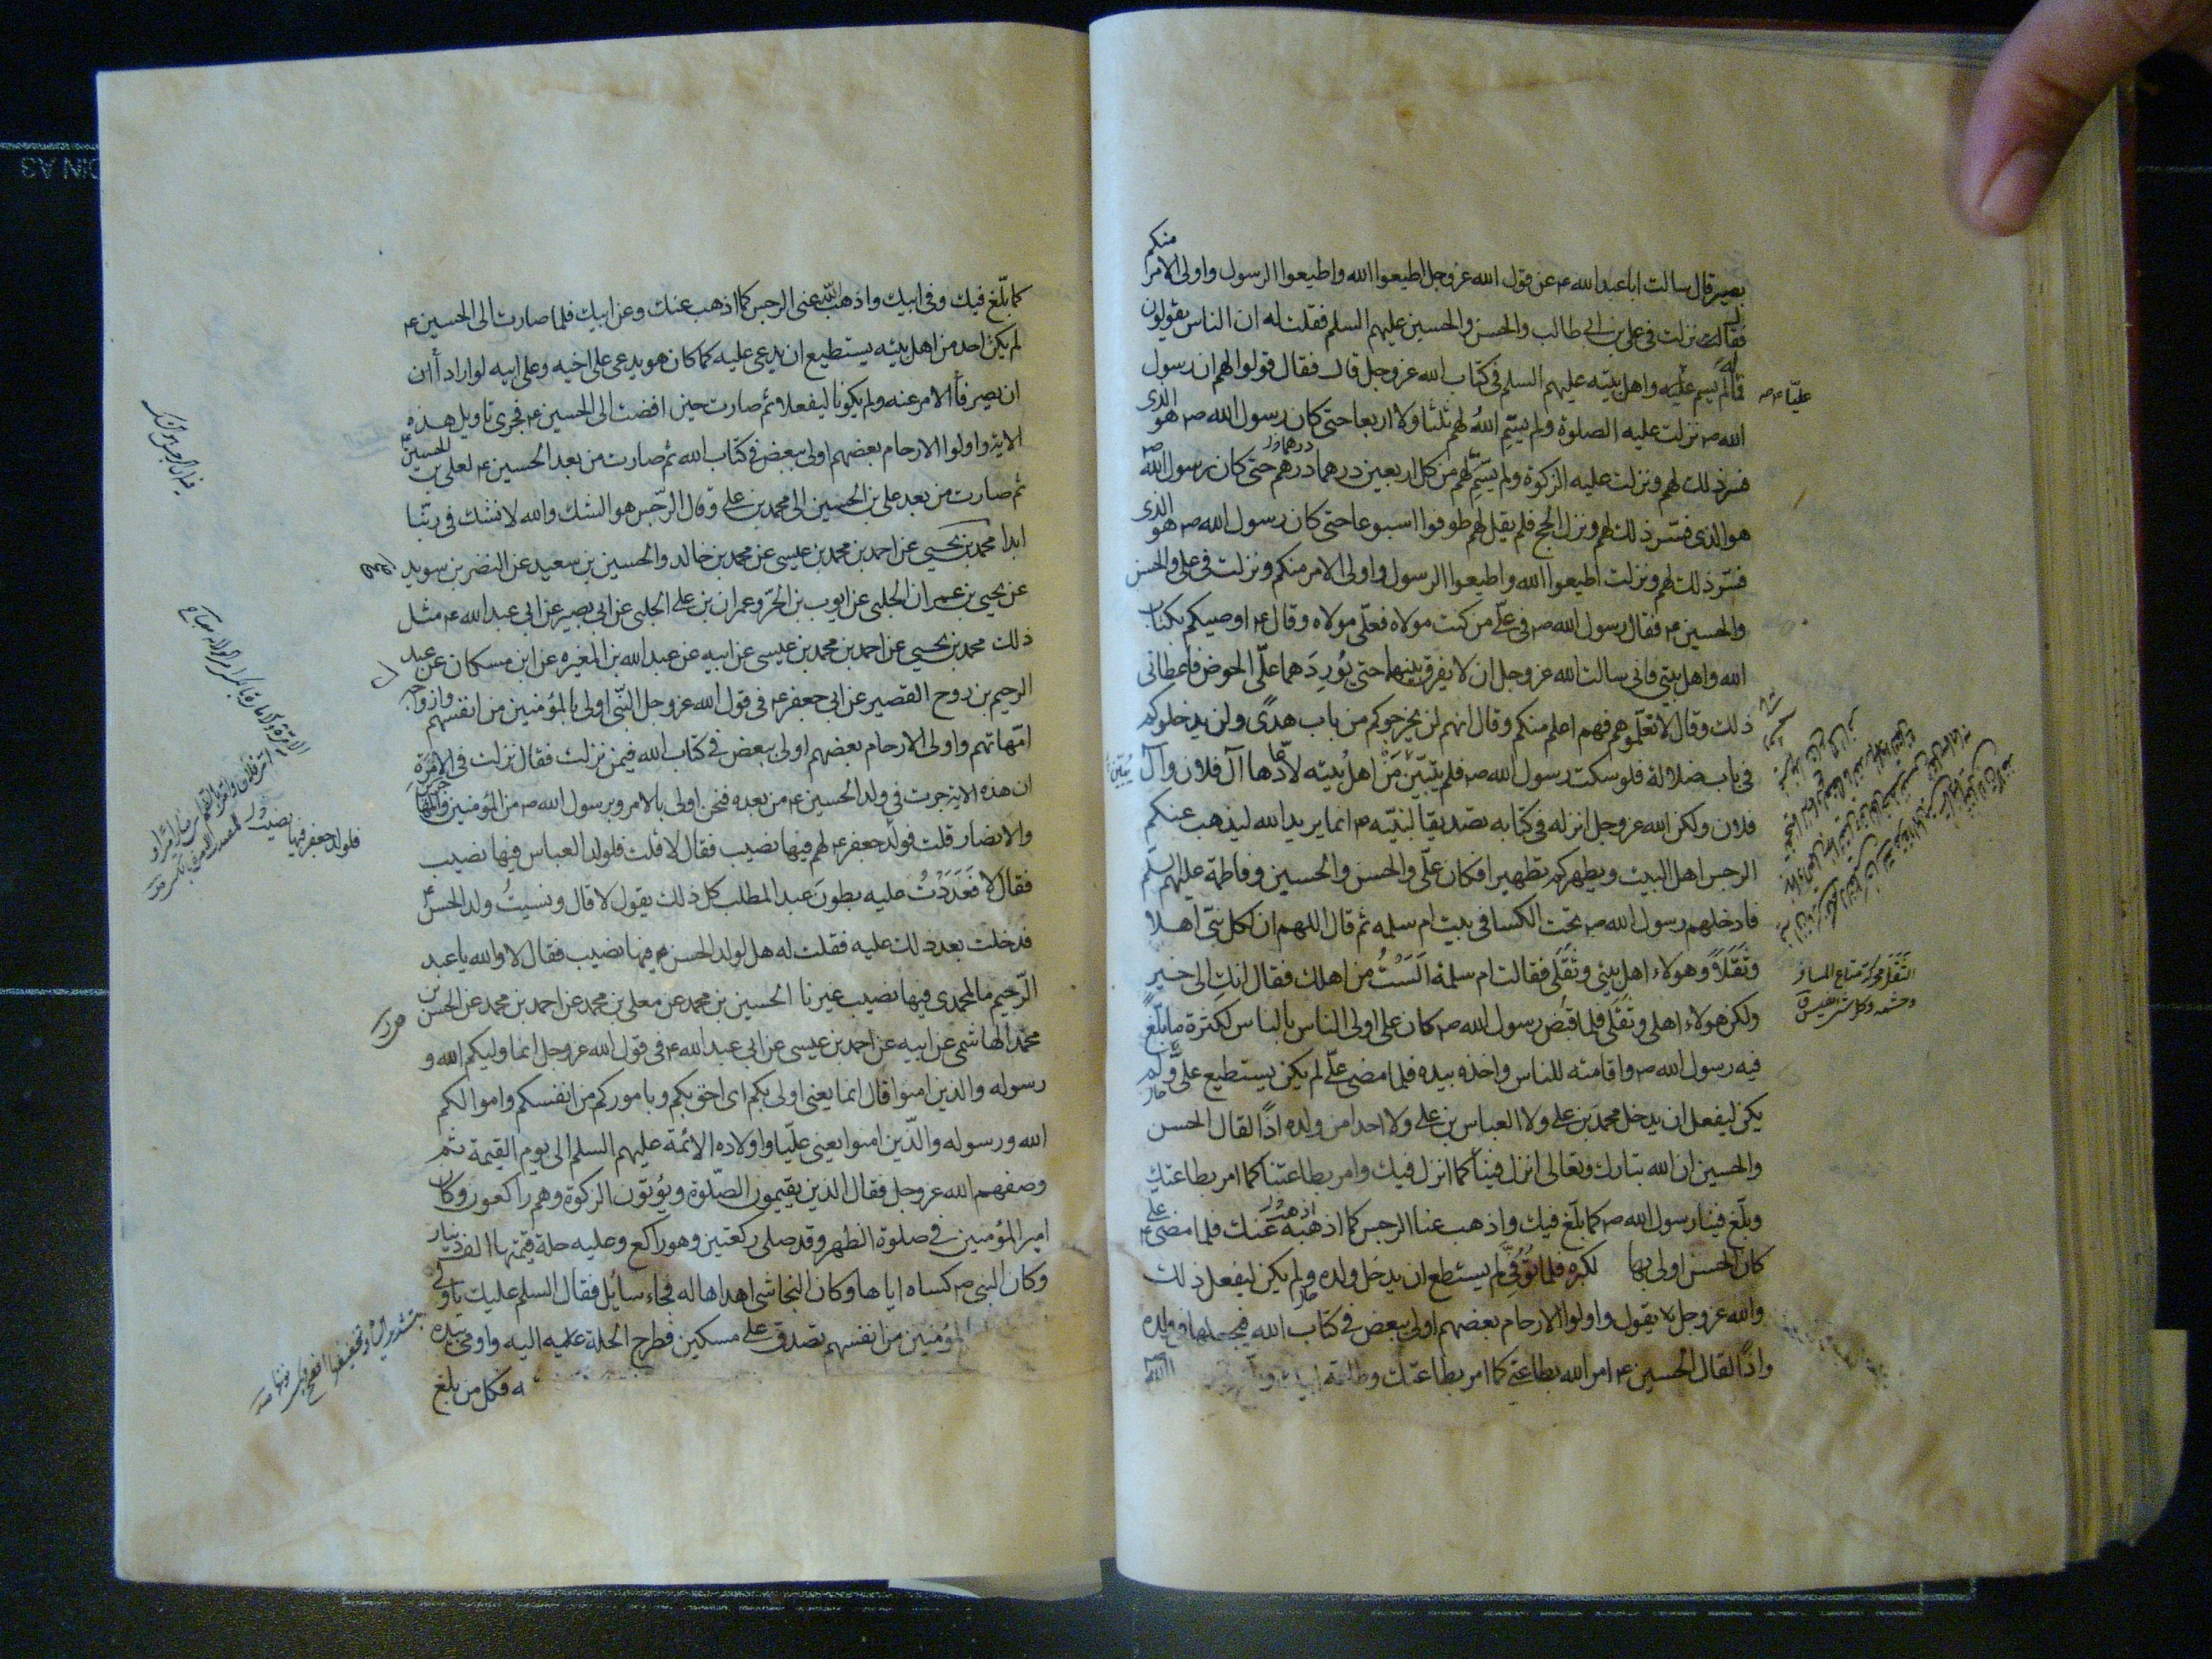 بصير قال سالت ابا عبد الله ع عن قول الله عز وجل اطيعوا الله واطيعوا الرسول واولى الامر منكم
فقال نزلت فى على بن ابى طالب والحسن والحسين عليهم السلم فقلت له ان الناس يقولون
فما له لم يسم عليا واهل بيته عليهم السلم فى كتاب الله عز وجل قال فقال قولوا لهم ان رسول
الله ص نزلت عليه الصلوة ولم يسم الله لهم ثلثا ولا اربعا حتى كان رسول الله ص هو الذى
فسر ذلك لهم ونزلت عليه الزكوة ولم يسم لهم من كل اربعين درهما درهم حتى كان رسول الله ص
هو الذى فسر ذلك لهم ونزل الحج فلم يقل لهم طوفوا اسبوعا حتى كان رسول الله ص هو الذى
فسر ذلك لهم ونزلت اطيعوا الله واطيعوا الرسول واولى الامر منكم ونزلت فى على والحسن
والحسين ع فقال رسول الله ص فى علىّ من كنت مولاه فعلى مولاه وقال ع اوصيكم بكتاب
الله واهل بيتي فانى سالت الله عز وجل ان لا يفرق بينهما حتى يُورِدَهما علىّ الحوض فاعطانى
ذلك وقال لا تعلّموهم فهم اعلم منكم وقال انهم لن يخرجوكم من باب هدًى ولن يدخلوكم
فى باب ضلالة فلو سكت رسول الله ص فلم يبيّن مَنْ اهل بيته لادّعاها آل فلان وآل
فلان ولكن الله عز وجل انزله فى كتابه تصديقا لنبيّه ص انما يريد الله ليذهب عنكم
الرجس اهل البيت ويطهركم تطهيرا فكان علىّ والحسن والحسين وفاطمة عليهم السلم
فادخلهم رسول الله ص تحت الكسا فى بيت ام سلمه ثم قال اللهم ان لكل نبى اهلا
وثَقَلاً وهولاء اهل بيتى وثَقَلى فقالت ام سلمة اَلَسْتُ من اهلك فقال انك الى خير
ولكن هولاء اهلى وثَقَلى فلما قبض رسول الله ص كان على اولى الناس بالناس لكثرة ما بلّغ
فيه رسول الله ص واقامته للناس واخذه بيده فلما مضى علىّ لم يكن يستطيع علىّ ولم
يكن ليفعل ان يدخل محمد بن على ولا العباس بن على ولا احدا من ولده اذًا لقال الحسن
والحسين ان الله تبارك وتعالى انزل فينا كما انزل فيك وامر بطاعتنا كما امر بطاعتك
وبلّغ فينا رسول الله ص كما بلّغ فيك واذهب عنا الرجس كما اذهبه عنك فلما مضى على ع
كان الحسن اولى بها لكبره فلما تُوُفّىَ لم يستطع ان يدخل ولده ولم يكن ليفعل ذلك
والله عز وجل يقول واولوا الارحام بعضهم اولى ببعض فى كتاب الله فيجعلها فى ولده
واذًا لقال الحسين ع امر الله بطاعتى كما امر بطاعتك وطاعة ابيك
عليّا ع صح
الثَقَل محركة متاع المسافر
وحشمه وكل شئ نفيس ق
كما بلّغ فيك وفى ابيك واذهب الله عنى الرجس كما اذهب عنك وعن ابيك فلما صارت الى الحسين ع
لم يكن احد من اهل بيته يستطيع ان يدعى عليه كما كان هو يدعى على اخيه وعلى ابيه لو ارادا ان
ان يصرفا الامر عنه ولم يكونا ليفعلا ثم صارت حين افضت الى الحسين ع فجرى تاويل هذه
الاية واولوا الارحام بعضهم اولى ببعض فى كتاب الله ثم صارت من بعد الحسين ع لعلى بن الحسين ع
ثم صارت من بعد على بن الحسين الى محمد بن على وقال الرّجس هو الشك والله لا نشك فى ربّنا
ابدا محمد بن يحيى عن احمد بن محمد بن عيسى عن محمد بن خالد والحسين بن سعيد عن النضر بن سويد
عن يحيى بن عمران الحلبى عن ايوب بن الحر وعمران بن على الحلبى عن ابى بصير عن ابى عبد الله ع مثل
ذلك محمد بن يحيى عن احمد بن محمد بن عيسى عن ابيه عن عبد الله بن المغيره عن ابن مسكان عن عبد
الرحيم بن روح القصير عن ابى جعفر ع فى قول الله عز وجل النّبى اولى بالمؤمنين من انفسهم وازواجه
امّهاتهم واولى الارحام بعضهم اولى ببعض فى كتاب الله فيمن نزلت فقال نزلت فى الاِمْرَة
ان هذه الاية جرت فى ولد الحسين ع من بعده فنحن اولى بالامر وبرسول الله ص من المؤمنين والمهاجرين
والانصار قلت فولد جعفر ع لهم فيها نصيب فقال لا قلت فلولد العباس فيها نصيب
فقال لا فَعَدَدْتُ عليه بطونَ عبد المطلب كل ذلك يقول لا قال ونسيتُ ولد الحسن ع
فدخلت بعد ذلك عليه فقلت له هل لولد الحسن ع فيها نصيب فقال لا والله يا عبد
الرّحيم ما لمحمدى فيها نصيب غيرنا الحسين بن محمد عن معلى بن محمد عن احمد بن محمد عن الحسن بن
محمد الهاشمى عن ابيه عن احمد بن عيسى عن ابى عبد الله ع فى قول الله عز وجل انما وليكم الله و
رسوله والذين امنوا قال انما يعنى اولى بكم اى احق بكم وبامور كم من انفسكم واموالكم
الله ورسوله والّذين امنوا يعنى عليّا واولاده الائمة عليهم السلم الى يوم القيمة ثم
وصفهم الله عز وجل فقال الذين يقيمون الصّلوة ويُؤتون الزكوة وهم راكعون وكان
امير المؤمنين فى صلوة الظهر وقد صلى ركعتين وهو راكع وعليه حلة قيمتها الف دينار
وكان النبى ص كساه اياها وكان النجاشى اهداها له فجاء سائل فقال السلم عليك يا ولى
المؤمنين من انفسهم تصدق على مسكين فطرح الحلة عليه اليه واومى بيده
فكل من بلغ
فلولد جعفر فيها نصيب